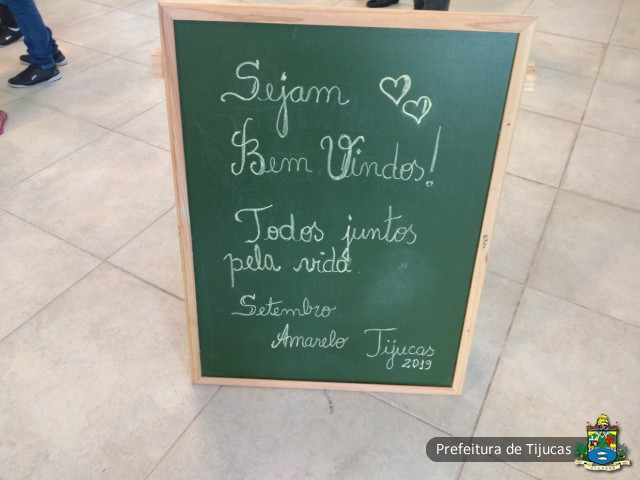 Sejam
Bem Vindos!
Todos juntos
pela vida.
Setembro
Amarelo Tijucas
2019
Prefeitura de Tijucas